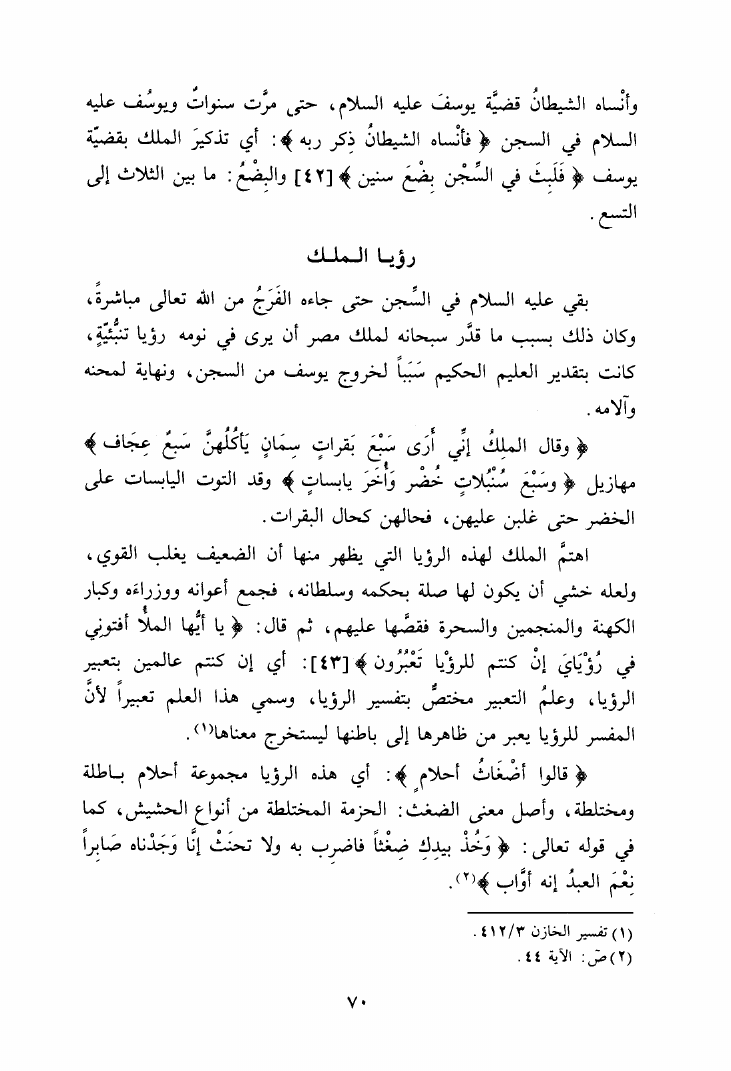 وأنْساه الشيطانُ قضيَّة يوسفَ عليه السلام، حتى مرَّت سنواتٌ ويوسُف عليه
السلام في السجن ﴿ فأنْساه الشيطانُ ذِكر ربه ﴾: أي تذكيرَ الملك بقضيّة
يوسف ﴿ فَلَبِثَ في السِّجْن بِضْعَ سنين ﴾ [٤٢] والبِضْعُ: ما بين الثلاث إلى
التسع.
رؤيا الملك
بقي عليه السلام في السِّجن حتى جاءه الفَرَجُ من الله تعالى مباشرةً،
وكان ذلك بسبب ما قدَّر سبحانه لملك مصر أن يرى في نومه رؤيا تنبُّئيّةٍ،
كانت بتقدير العليم الحكيم سَبَباً لخروج يوسف من السجن، ونهاية لمحنه
وآلامه.
﴿ وقال الملِكُ إنِّي أَرَى سَبْعَ بَقراتٍ سِمَانٍ يَأكُلُهنَّ سَبعٌ عِجَاف ﴾
مهازيل ﴿ وسَبْعَ سُنْبُلاتٍ خُضْر وَأُخَرَ يابساتٍ ﴾ وقد التوت اليابسات على
الخضر حتى غلبن عليهن، فحالهن كحال البقرات.
اهتمَّ الملك لهذه الرؤيا التي يظهر منها أن الضعيف يغلب القوي،
ولعله خشي أن يكون لها صلة بحكمه وسلطانه، فجمع أعوانه ووزراءه وكبار
الكهنة والمنجمين والسحرة فقصَّها عليهم، ثم قال: ﴿ يا أيُّها الملأُ أفتوني
في رُؤْيَايَ إنْ كنتم للرؤْيا تَعْبُرُون ﴾ [٤٣]: أي إن كنتم عالمين بتعبير
الرؤيا، وعلمُ التعبير مختصٌّ بتفسير الرؤيا، وسمي هذا العلم تعبيراً لأنَّ
المفسر للرؤيا يعبر من ظاهرها إلى باطنها ليستخرج معناها(١).
﴿ قالوا أضْغَاثُ أحلامٍ ﴾: أي هذه الرؤيا مجموعة أحلام باطلة
ومختلطة، وأصل معنى الضغث: الحزمة المختلطة من أنواع الحشيش، كما
في قوله تعالى: ﴿ وَخُذْ بيدِكِ ضِغْثاً فاضرِب به ولا تحنَثْ إنَّا وَجَدْناه صَابِراً
نِعْمَ العبدُ إنه أوَّاب ﴾(٢).
(١) تفسير الخازن ٤١٢/٣.
(٢) صَ: الآية ٤٤.
٧٠